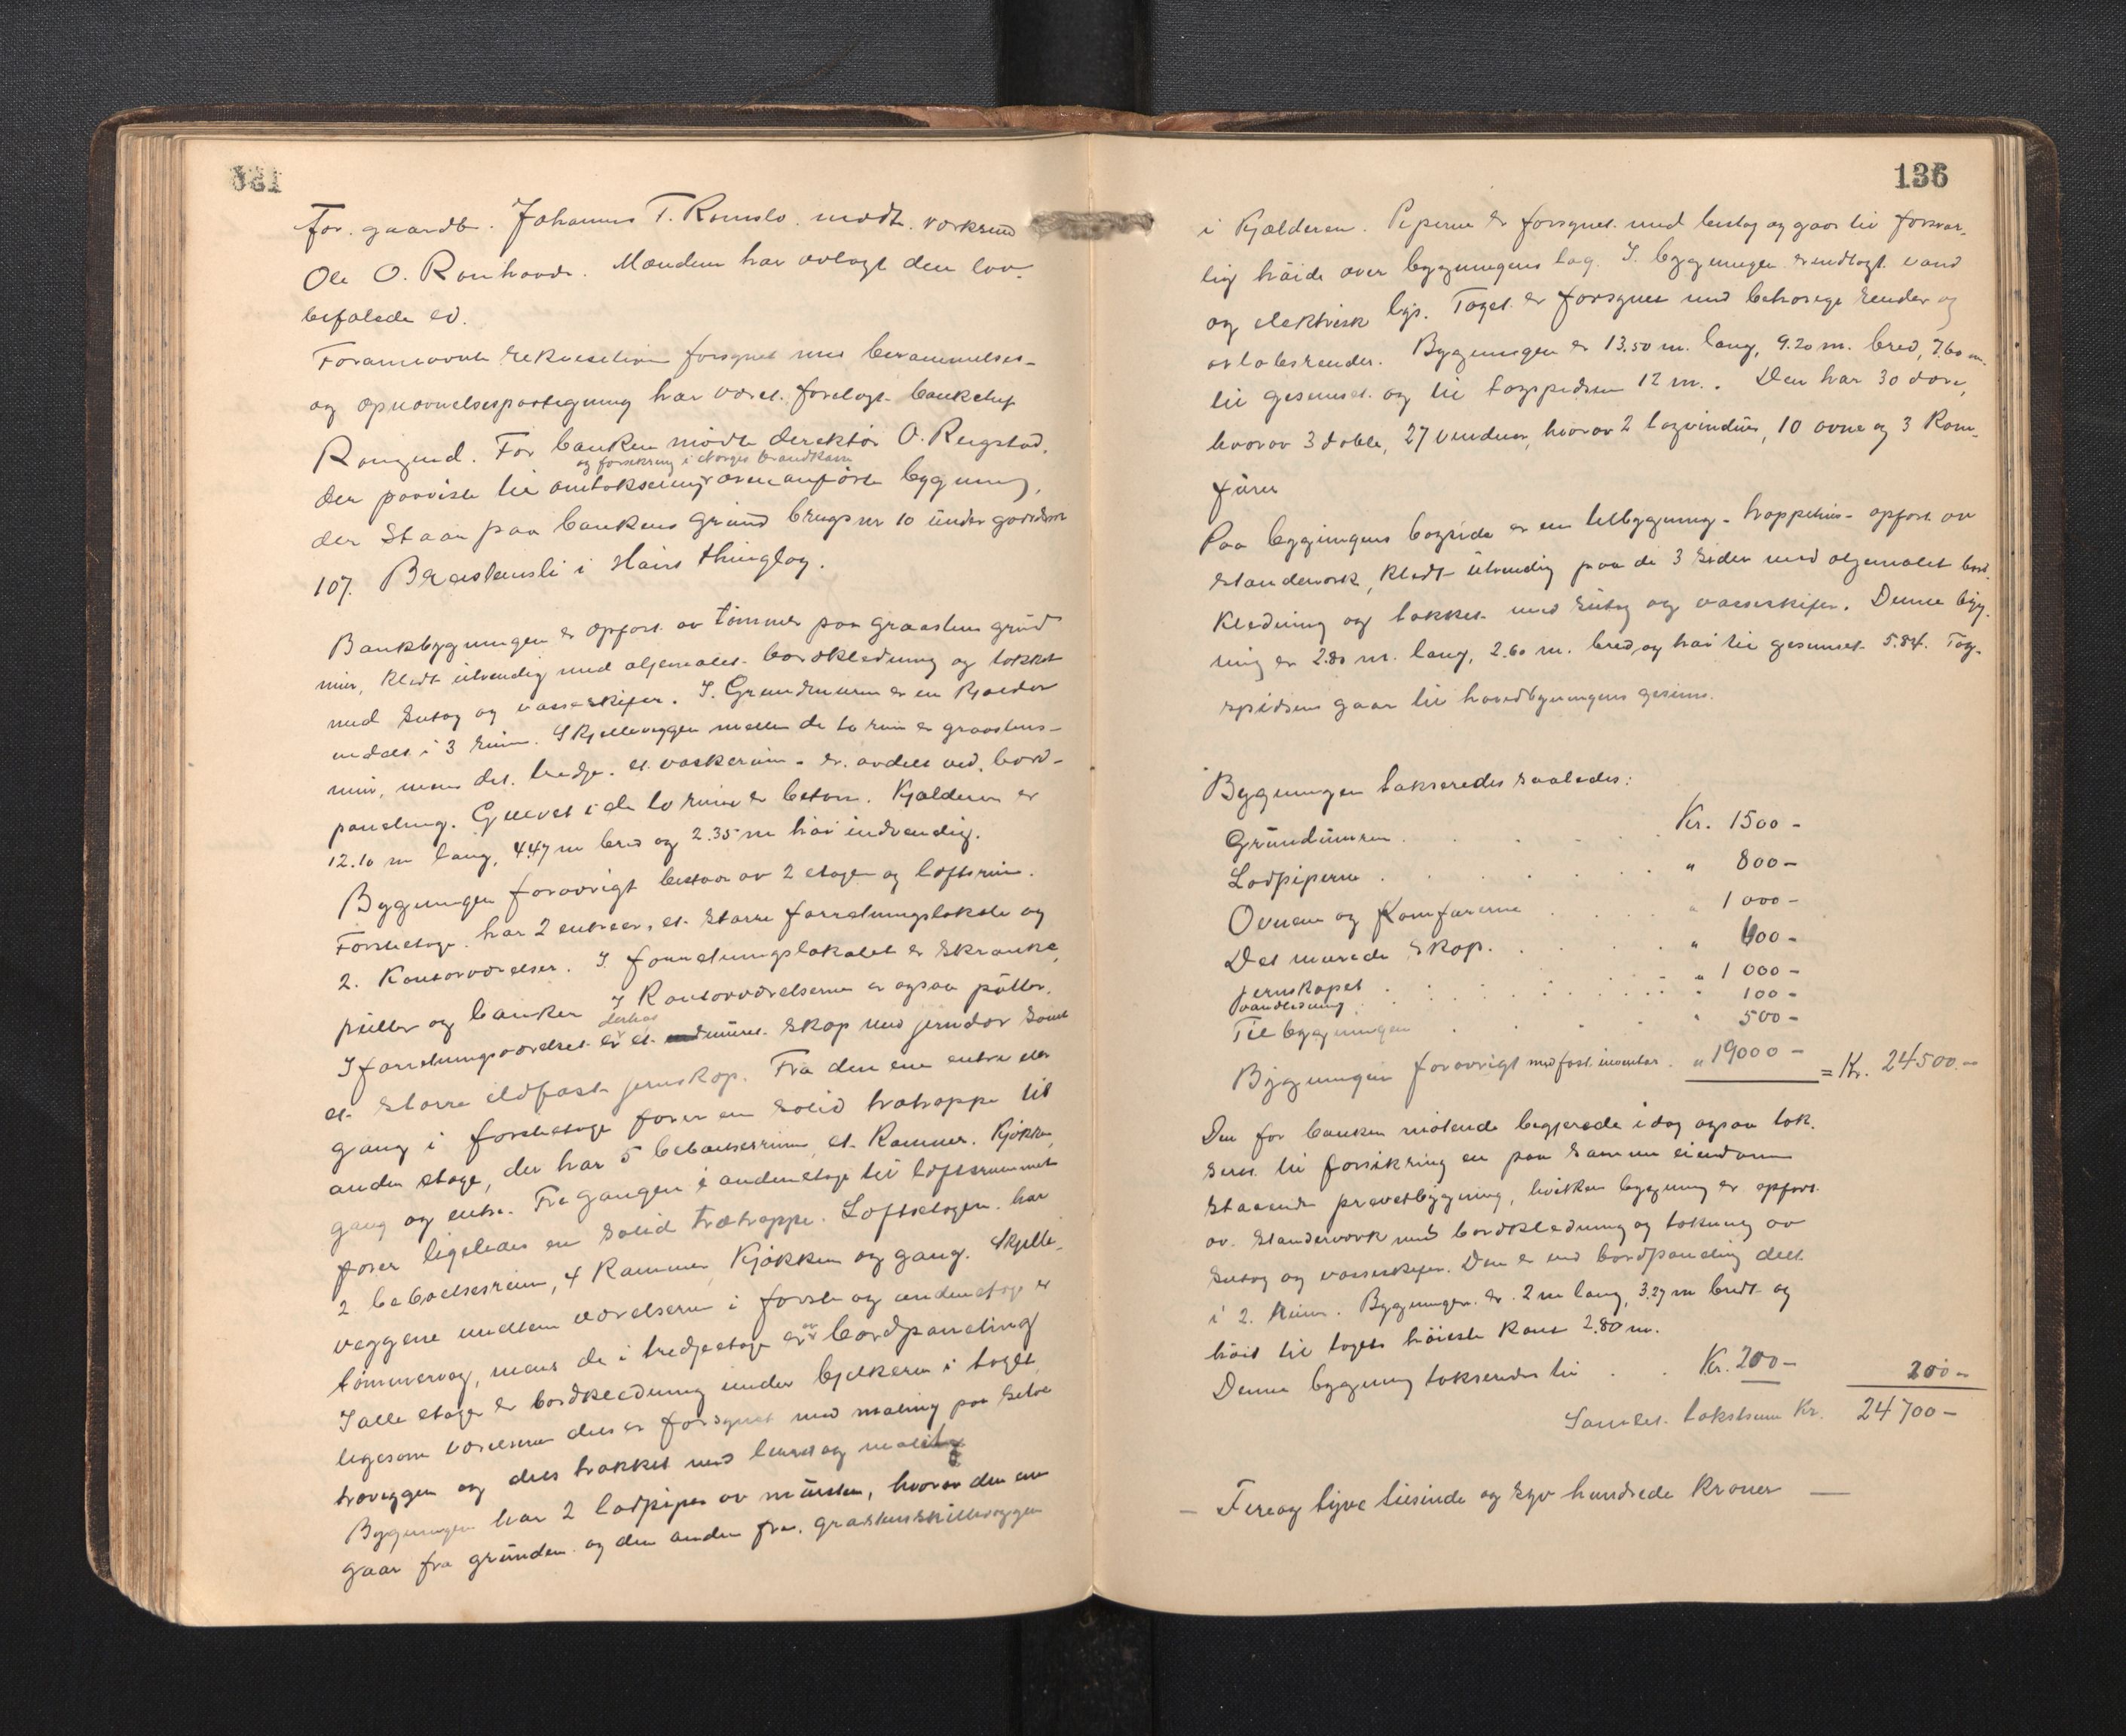 For. gaardb. Johannes T. Romslo. mødte. verksmd
Ole O. Ronhovde. Mændene har avlagt den lov-
befalede ed.
Forannævnte rekvisition forsynet med berammelses-
og opnævnelsespaategning har været forelagt banken
For banken mødte direktør O. Reigstad,
og forsikring i Norges Brandkasse
der paaviste til omtaksering ovenanførte bygning,
der staar paa bankens grund brugsnr 10 under gaardsnr
107. i Haus thinglag.
Bankbygningen er opført av tømmer paa graastens grund
mur, klædt utvendig med oljemalet bordklædning og tækket
med sutag og vasseskifer. I Grundmuren er en kjælder
inddelt i 3 rum. Skjelleveggen mellem de to rum er graastens-
mur, mens det tredje et vaskerum - er avdelt ved bord-
paneling. Gulvet i de to rum er betong. Kjælderen er
12.10 m lang, 4.47 m bred og 2.35 m høi indvendig.
Bygningen forøvrigt bestaar av 2 etager og loftsrum.
Førsteetage har 2 entreer, et større forretningslokale og
2. Kontorværelser. I forretningslokalet er skranke,
pulter og bænker. I Kontorværelserne er ogsaa pulter.
derhos
I forretningsværelset er et muret skap med jerndør samt
et større ildfast jernskap. Fra den ene entre eller
gang i førsteetage fører en solid trætrappe til
anden etage, der har 5 beboelsesrum, et Kammer. Kjøkken,
gang og entre. Fra gangen i andenetage til loftsrummet
fører ligeledes en solid trætrappe. Loftsetagen har
2 beboelsesrum, 4 Kammer, Kjøkken og gang. Skjelle-
veggene mellem værelserne i første og andenetage er
tømmerveg, mens de i tredjeetage er av bordpaneling
I alle etager er bordklædning under bjelkerne i taget,
ligesom værelserne dels er forsynet med maling paa selve
træveggen og dels trækket med lerret og malet
Bygningen har 2 lodpiper av mursten, hvorav den ene
gaar fra grunden og den anden fra graastensskilleveggen
136
i Kjælderen. Piperne er forsynet med beslag og gaar til forsvar-
lig høide over bygningens tag. I bygningen er indlagt vand
og elektrisk lys. Taget er forsynet med behørige render og
avløbsrender. Bygningen er 13.50 m. lang, 9.20 m. bred, 7.60 m.
til gesimset og til tagspidsen 12 m. Den har 30 døre,
hvorav 3 doble, 27 vinduer, hvorav 2 tagvinduer, 10 ovne og 3 Kom-
furer
Paa bygningens bagside er en tilbygning - trappehus - opført av
standerverk, klædt utvendig paa de 3 sider med oljemalet bord-
klædning og tækket med sutag og vasseskifer. Denne byg-
ning er 2.80 m. lang, 2.60 m. bred, og høi til gesimset 5.84. Tag-
spidsen gaar til hovedbygningens gesims.
Bygningen takseredes saaledes:
Grundmuren . . . . Kr. 1500 -
Lodpiperne . . . . " 800 -
Ovnene og Komfurerne . . . " 1000 -
Det murede skap. . . . " 600 -
Jernskapet . . . . " 1000 -
Vandledning . . . . " 100 -
Tilbygningen . . . . " 500 -
Bygningen forøvrigt med fast inventar. " 19000 - = Kr. 24500. -
Den for banken møtende begjærede idag ogsaa tak-
sert til forsikring en paa samme eiendom
staaende privetbygning, hvilken bygning er opført
av standerverk med bordklædning og tækning av
sutag og vasseskifer. Den er ved bordpaneling delt
i 2. Rum. Bygningen er 2 m lang, 3.27 m bredt og
høit til tagets høieste kant 2.80 m.
Denne bygning takseredes til . . Kr. 200 - 200 -
Samlet takstsum Kr. 24700 -
- Fireog tyve tusinde og syv hundrede kroner -